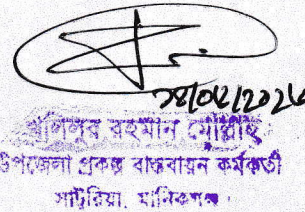 খলিলুর রহমান মোল্লাহ
উপজেলা প্রকল্প বাস্তবায়ন কর্মকর্তা
সাটুরিয়া, মানিকগঞ্জ।